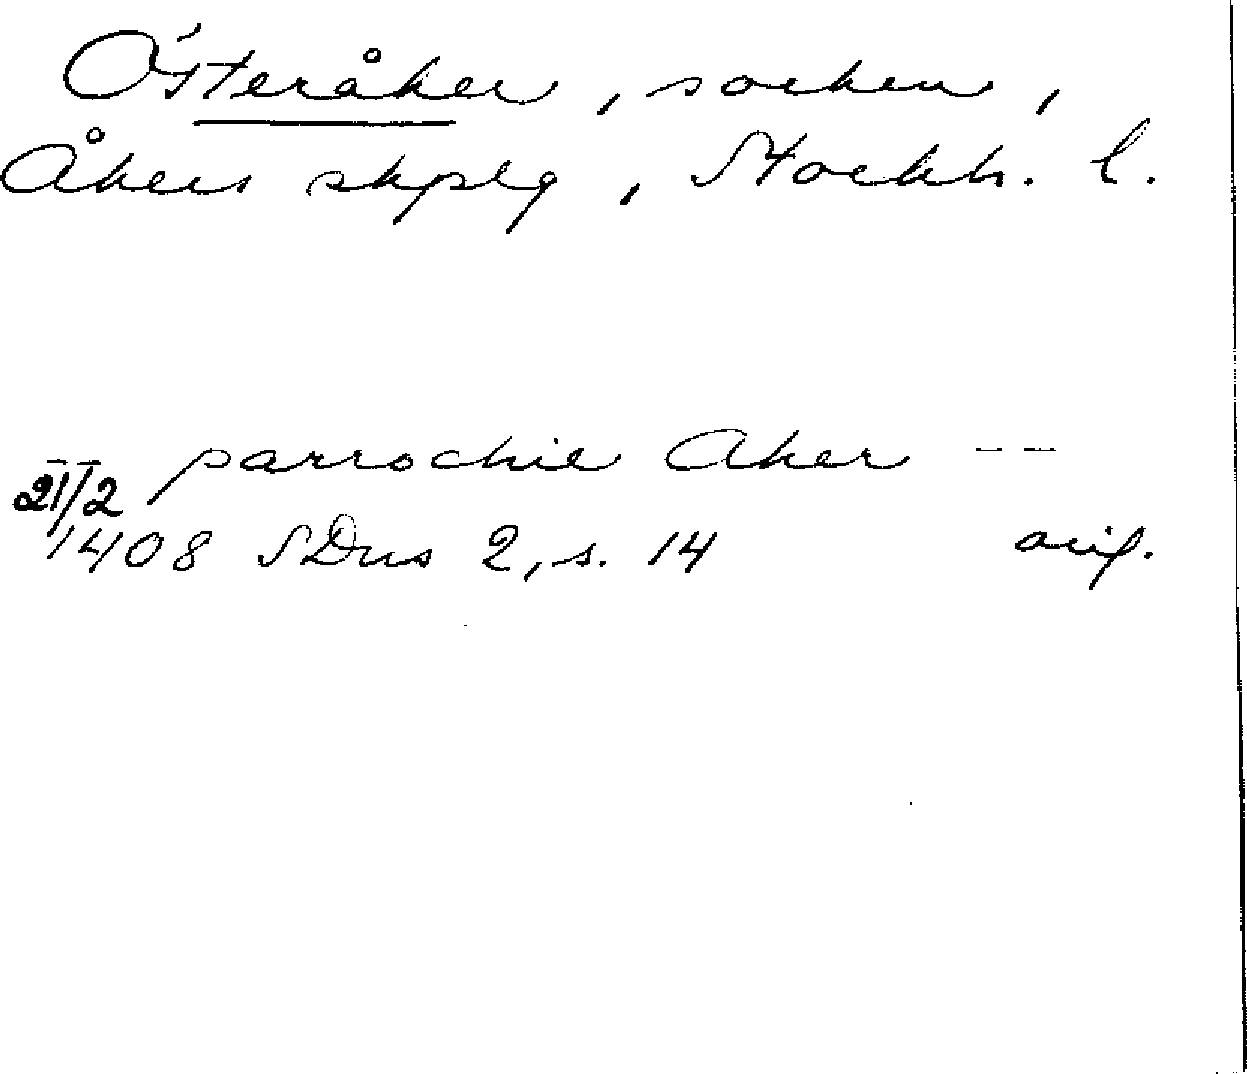 Österåker, socken,
Åkers skplg, Stockh. l.
-- parrochie Aker --
21/2
1408 SDns 2, s. 14 orig.